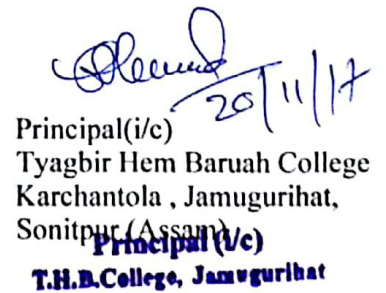 20/11/17
Principal(i/c)
Tyagbir Hem Baruah College
Karchantola , Jamugurihat,
Sonitpur (Assam)
Principal (i/c)
T.H.B.College, Jamugurihat